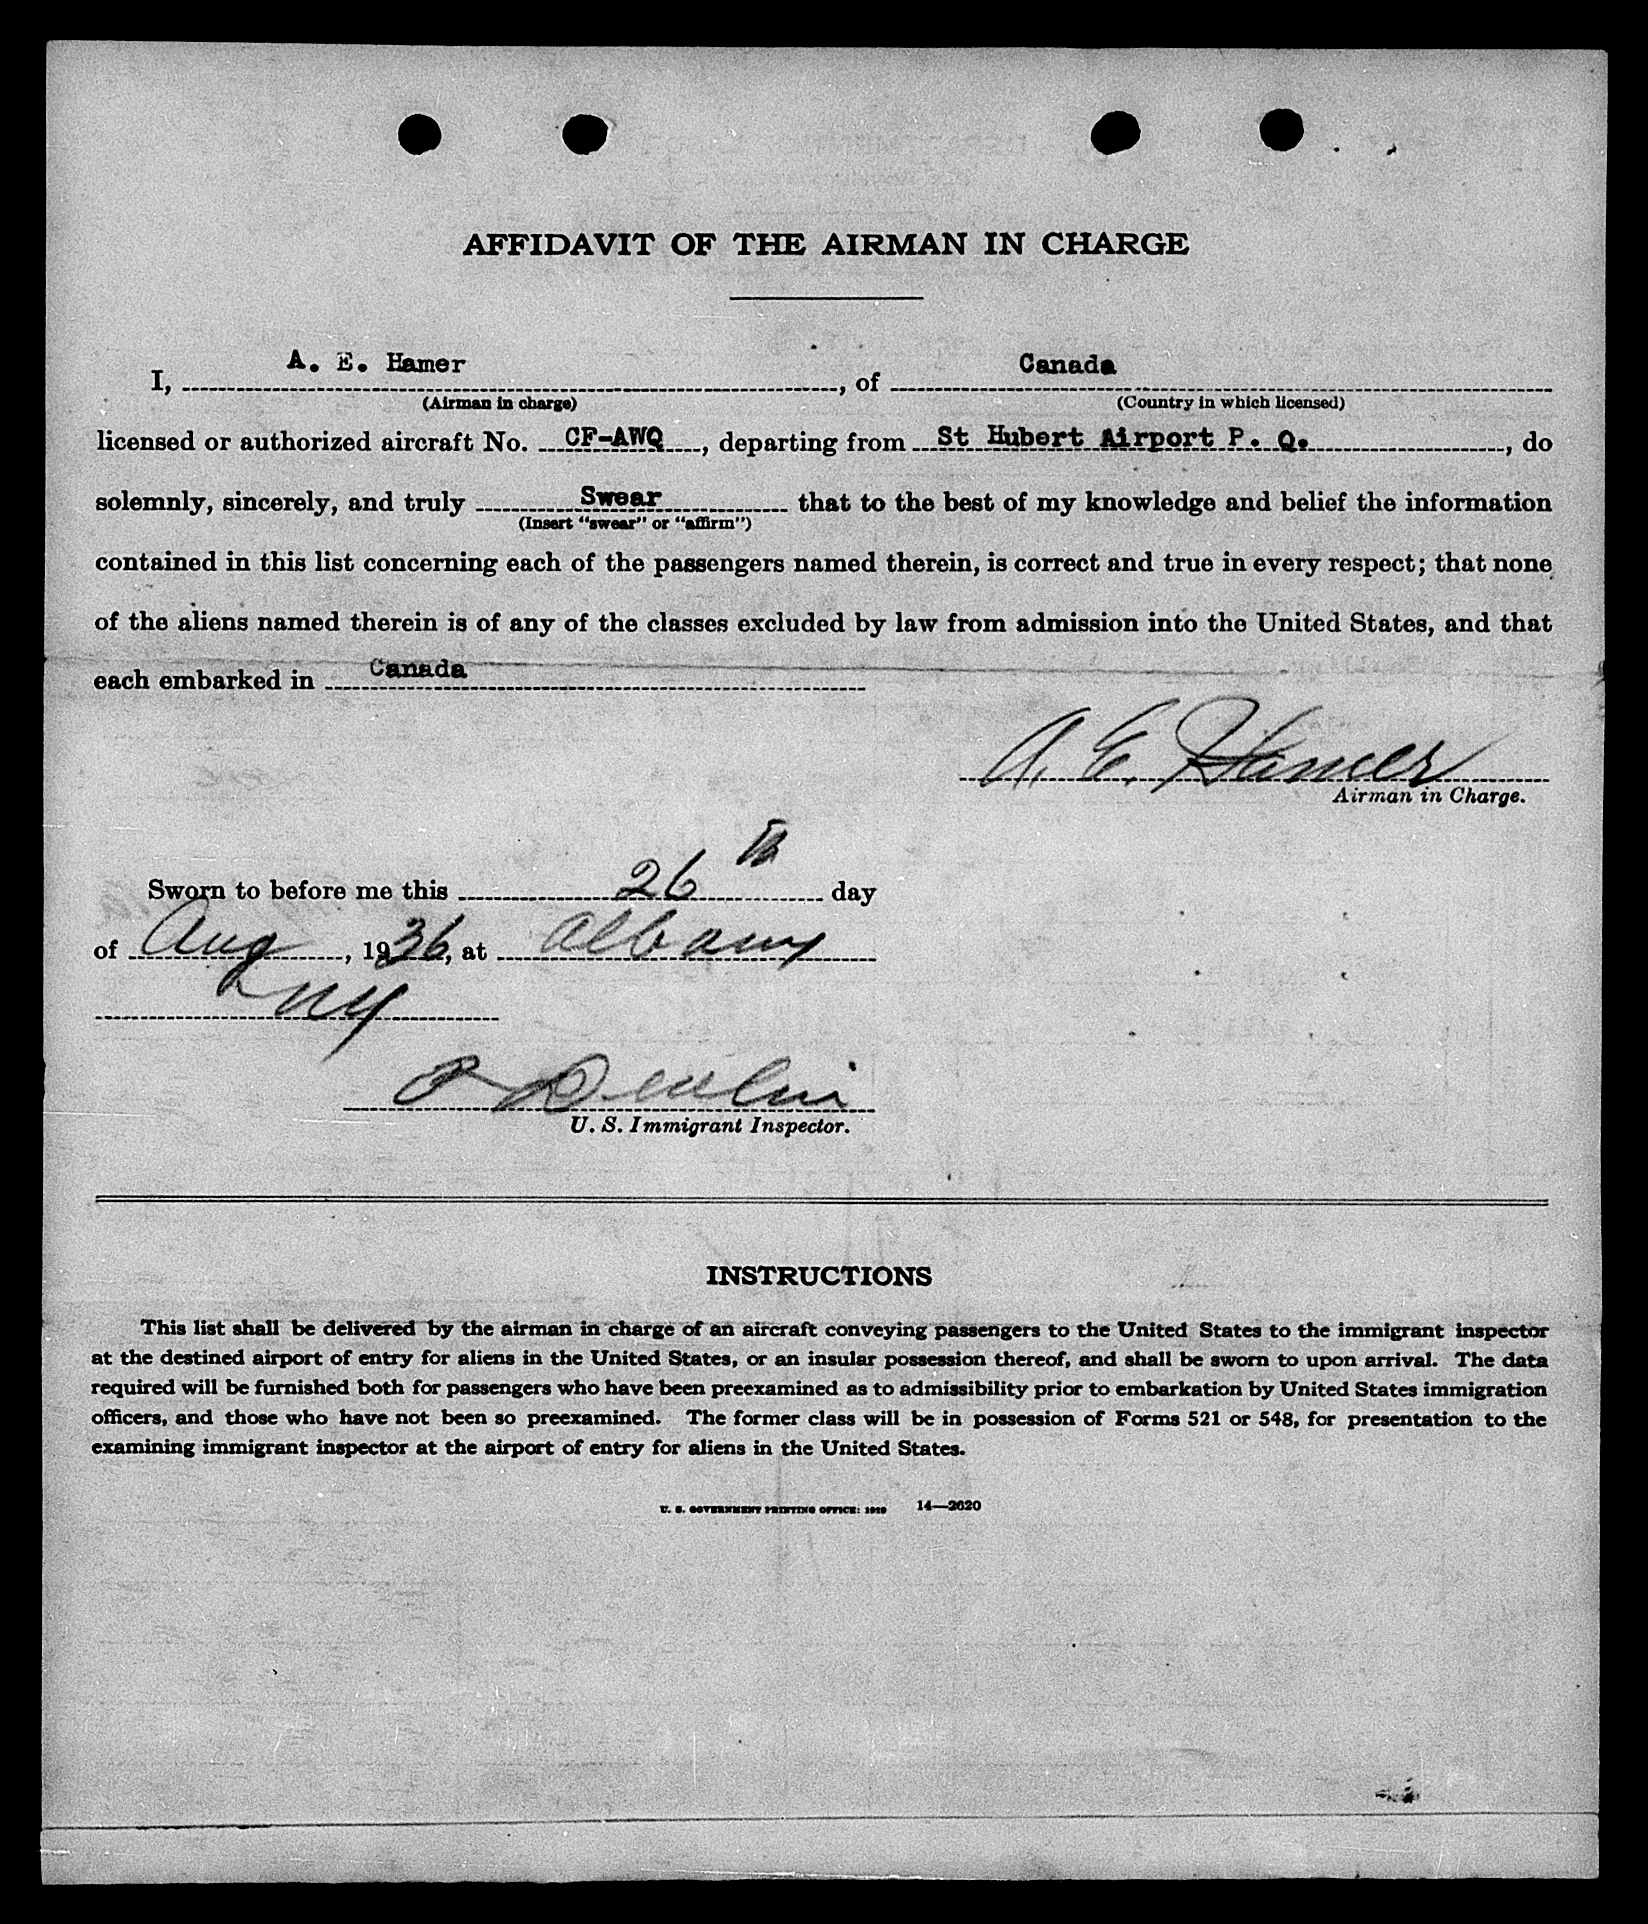 AFFIDAVIT OF THE AIRMAN IN CHARGE
I, A. E. Hamer, of Canada
(Airman in charge) (Country in which licensed)
licensed or authorized aircraft No. CF-AWQ, departing from St Hubert Airport P. Q., do
solemnly, sincerely, and truly Swear that to the best of my knowledge and belief the information
(Insert "swear" or "affirm")
contained in this list concerning each of the passengers named therein, is correct and true in every respect; that none
of the aliens named therein is of any of the classes excluded by law from admission into the United States, and that
each embarked in Canada
A. E. Hamer
Airman in Charge.
Sworn to before me this 26th day
of Aug, 1936, at Albany
NY
U. S. Immigrant Inspector.
INSTRUCTIONS
This list shall be delivered by the airman in charge of an aircraft conveying passengers to the United States to the immigrant inspector
at the destined airport of entry for aliens in the United States, or an insular possession thereof, and shall be sworn to upon arrival. The data
required will be furnished both for passengers who have been preexamined as to admissibility prior to embarkation by United States immigration
officers, and those who have not been so preexamined. The former class will be in possession of Forms 521 or 548, for presentation to the
examining immigrant inspector at the airport of entry for aliens in the United States.
U. S. GOVERNMENT PRINTING OFFICE: 14—2620